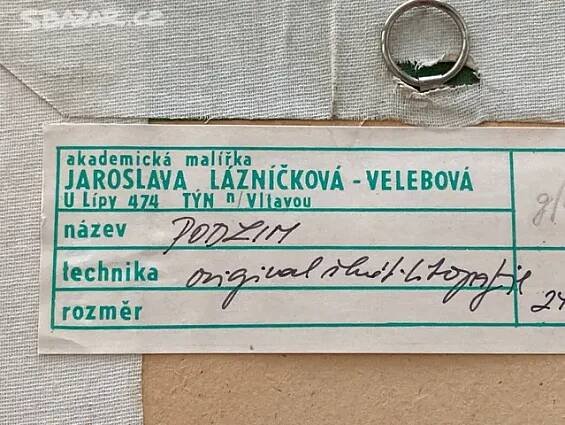 SBAZAR.CZ
akademická malířka
JAROSLAVA LÁZNÍČKOVÁ - VELEBOVÁ
U Lípy 474 TÝN n/Vltavou
název PODZIM
technika original
rozměr 24